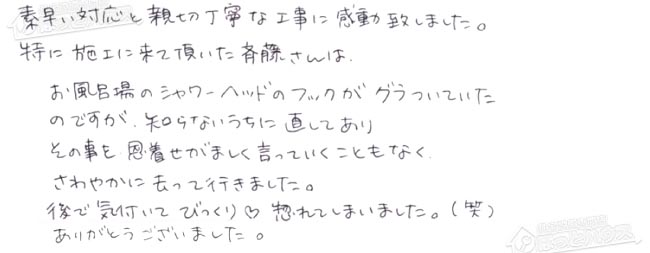 素早い対応と親切丁寧な工事に感動致しました。
特に施工に来て頂いた斉藤さんは、
お風呂場のシャワーヘッドのフックがグラついていた
のですが、知らないうちに直してあり
その事を恩着せがましく言っていくこともなく、
さわやかに去って行きました。
後で気付いてびっくり♡惚れてしまいました。(笑)
ありがとうございました。